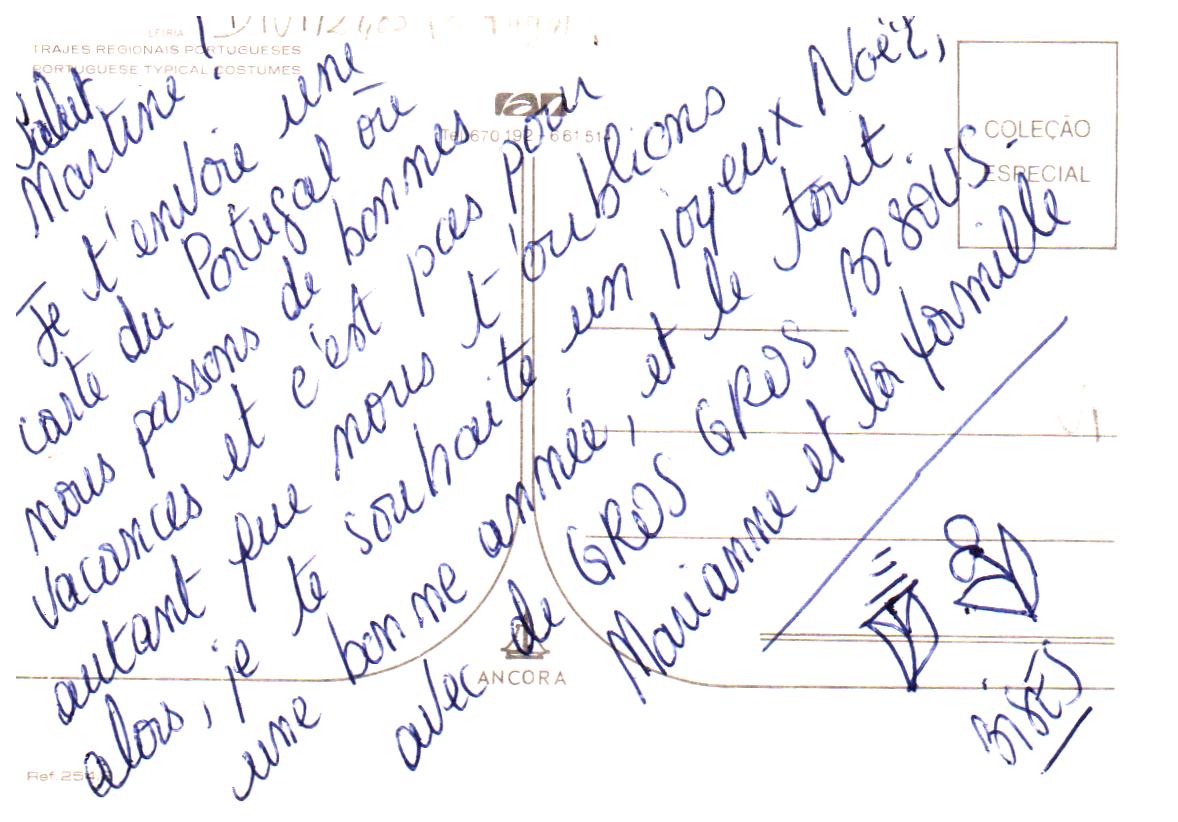 LEIRIA
TRAJES REGIONAIS PORTUGUESES
PORTUGUESE TYPICAL COSTUMES
Salut
Martine !
Je t'envoie une
carte du Portugal où
nous passons de bonnes
vacances et c'est pas pour
autant que nous t'oublions
alors, je te souhaite un joyeux Noël,
une bonne année, et le tout
avec de GROS GROS BISOUS.
Marianne et la famille
BISES
COLEÇÃO
ESPECIAL
Tel. 670 192 - 661 51
ANCORA
Ref. 254